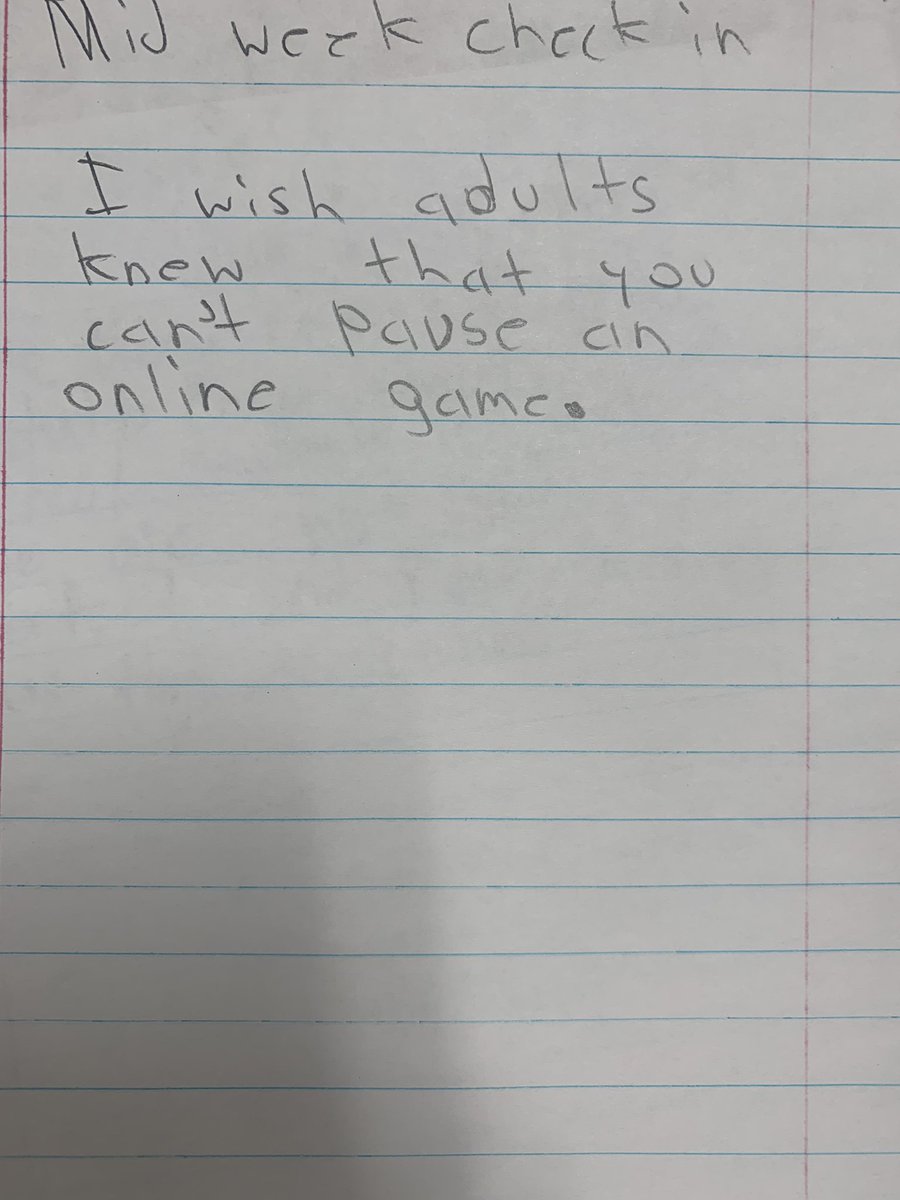 Mid week check in
I wish adults
knew that you
can't pause an
online game.